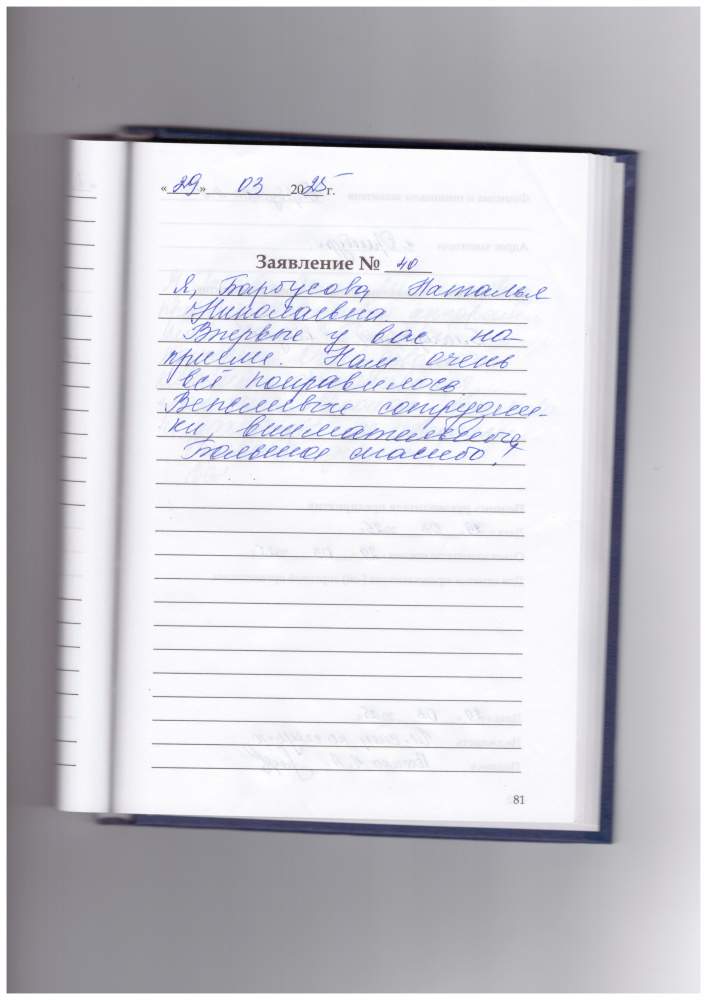 «29» 03 2025 г.
Заявление № 40
Я, Барбусова Наталья
Николаевна
Впервые у вас на
приеме. Нам очень
всё понравилось.
Вежливые сотрудни-
ки, внимательные
Большое спасибо!
81